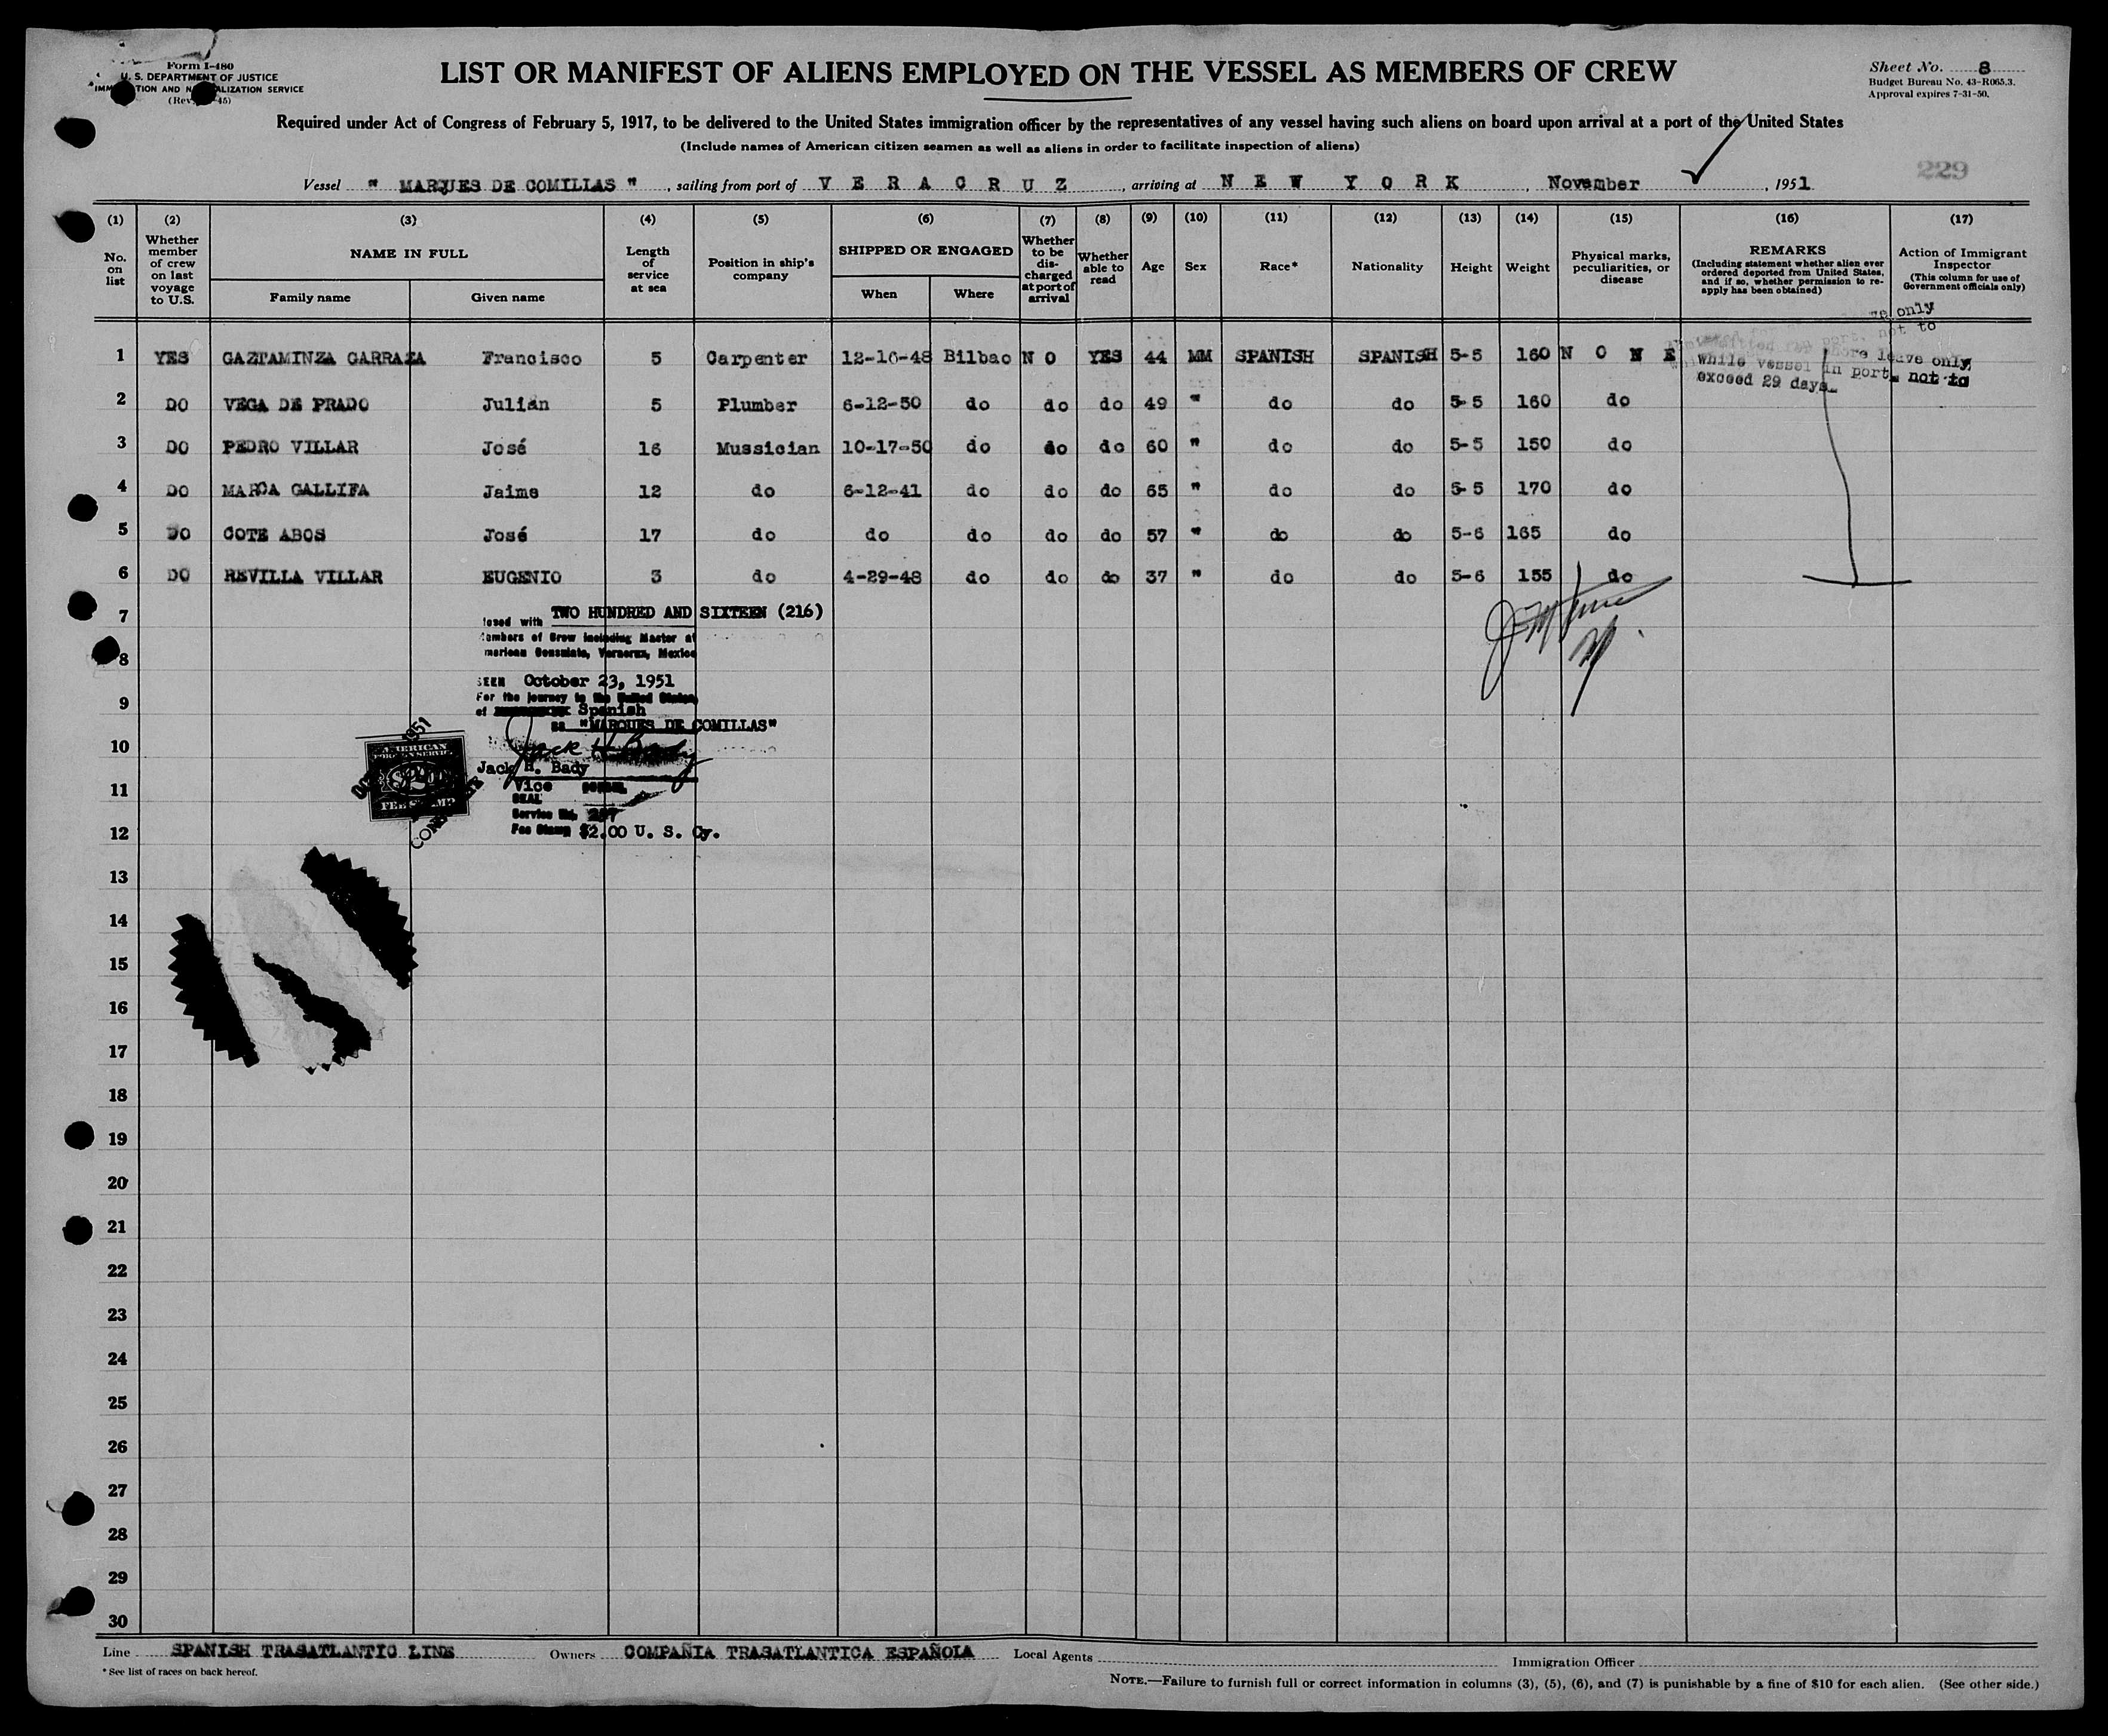 Form I-480
U. S. DEPARTMENT OF JUSTICE
IMMIGRATION AND NATURALIZATION SERVICE
LIST OR MANIFEST OF ALIENS EMPLOYED ON THE VESSEL AS MEMBERS OF CREW
Sheet No. 8
Budget Bureau No. 43-R065.3.
Approval expires 7-31-50.
Required under Act of Congress of February 5, 1917, to be delivered to the United States immigration officer by the representatives of any vessel having such aliens on board upon arrival at a port of the United States
(Include names of American citizen seamen as well as aliens in order to facilitate inspection of aliens)
229
Vessel " MARQUES DE COMILLAS ", sailing from port of V E R A C R U Z, arriving at N E W Y O R K, November, 1951
(1) (2) (3) (4) (5) (6) (7) (8) (9) (10) (11) (12) (13) (14) (15) (16) (17)
No. on list
Whether member of crew on last voyage to U.S.
NAME IN FULL
Family name
Given name
Length of service at sea
Position in ship's company
SHIPPED OR ENGAGED
When
Where
Whether to be discharged at port of arrival
Whether able to read
Age
Sex
Race*
Nationality
Height
Weight
Physical marks, peculiarities, or disease
REMARKS
(Including statement whether alien ever ordered deported from United States, and if so, whether permission to reapply has been obtained)
Action of Immigrant Inspector
(This column for use of Government officials only)
1 YES GAZTAMINZA GARRAZA Francisco 5 Carpenter 12-16-48 Bilbao N O YES 44 MM SPANISH SPANISH 5-5 160 N O N E
shore leave only
while vessel in port, not to
exceed 29 days.
2 DO VEGA DE PRADO Julián 5 Plumber 6-12-50 do do do 49 " do do 5-5 160 do
3 DO PEDRO VILLAR José 16 Mussician 10-17-50 do do do 60 " do do 5-5 150 do
4 DO MARCA GALLIFA Jaime 12 do 6-12-41 do do do 65 " do do 5-5 170 do
5 DO COTE ABOS José 17 do do do do do 57 " do do 5-6 165 do
6 DO REVILLA VILLAR EUGENIO 3 do 4-29-48 do do do 37 " do do 5-6 155 do
7
TWO HUNDRED AND SIXTEEN (216)
Members of Crew including Master at
American Consulate, Veracruz, Mexico
8
SEEN October 23, 1951
For the journey to the United States
9
of Spanish
ss "MARQUES DE COMILLAS"
10
AMERICAN
FOREIGN SERVICE
FEE STAMP
Jack H. Bady
Jack H. Bady
11
Vice CONSUL
SEAL
Service No. 297
12
Fee Stamp $2.00 U. S. Cy.
13
14
15
16
17
18
19
20
21
22
23
24
25
26
27
28
29
30
Line SPANISH TRASATLANTIC LINE Owners COMPAÑIA TRASATLANTICA ESPAÑOLA Local Agents Immigration Officer
* See list of races on back hereof.
NOTE.—Failure to furnish full or correct information in columns (3), (5), (6), and (7) is punishable by a fine of $10 for each alien. (See other side.)